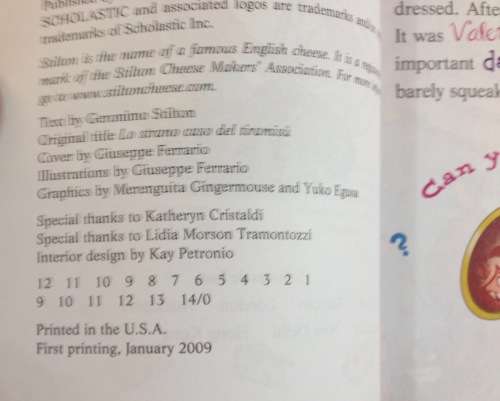 Published
SCHOLASTIC and associated logos are trademarks and/or
trademarks of Scholastic Inc.
Stilton is the name of a famous English cheese. It is a
mark of the Stilton Cheese Makers' Association. For more
go to www.stiltoncheese.com.
Text by Geronimo Stilton
Original title La strano caso del tiramisù
Cover by Giuseppe Ferrario
Illustrations by Giuseppe Ferrario
Graphics by Merenguita Gingermouse and Yuko Egusa
Special thanks to Katheryn Cristaldi
Special thanks to Lidia Morson Tramontozzi
Interior design by Kay Petronio
12 11 10 9 8 7 6 5 4 3 2 1
9 10 11 12 13 14/0
Printed in the U.S.A.
First printing, January 2009
dressed. Afte
It was Valen
important da
barely squeak
Can y
?